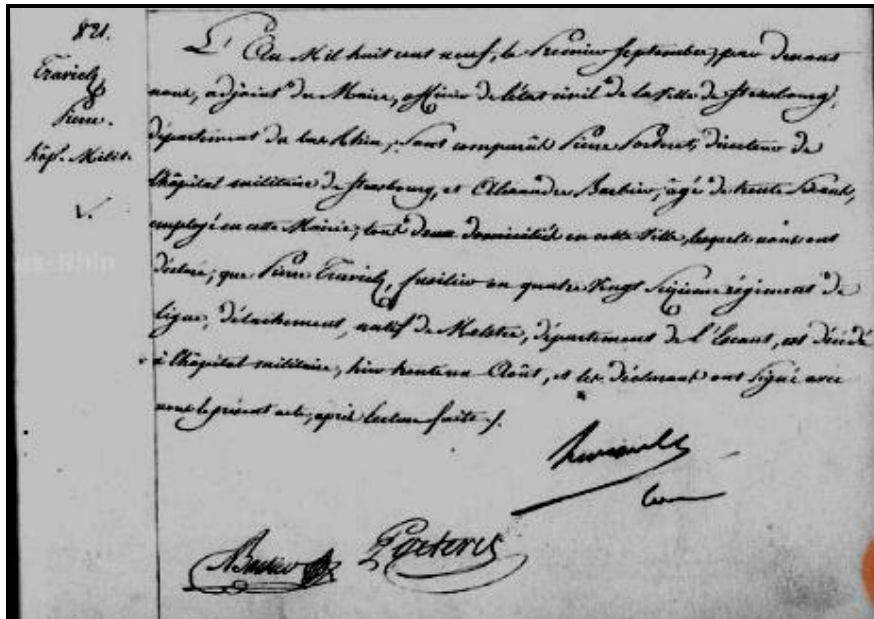 821.
Travich
Pierre.
hôpl. Milit.
L'An Mil huit cent neuf, le Premier Septembre, par devant
nous, adjoint du Maire, officier de l'état civil de la Ville de Strasbourg,
département du bas Rhin, sont comparûs Pierre Porteret, directeur de
l'hôpital militaire de Strasbourg, et Alexandre Barbier, âgé de trente ans,
employé en cette Mairie, tous deux domiciliés en cette Ville, lesquels nous ont
déclaré, que Pierre Travich, fusilier au quatre Vingt Seizieme régiment de
ligne, détachement, natif de Melster, département de l'Escaut, est décédé
à l'hôpital militaire, hier trente un Août, et les déclarant ont signé avec
nous le présent acte, après lecture faite ./.
Barbier
as-Rhin